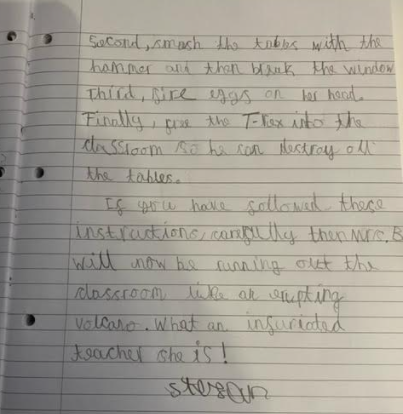 Second, smash the tables with the
hammer and then break the window
Third, fire eggs on her head.
Finally, free the T-Rex into the
classroom so he can destroy all
the tables.
If you have followed these
instructions, carefully then Mrs. B
will now be running out the
classroom like an erupting
volcano. What an infuriated
teacher she is!
stefan